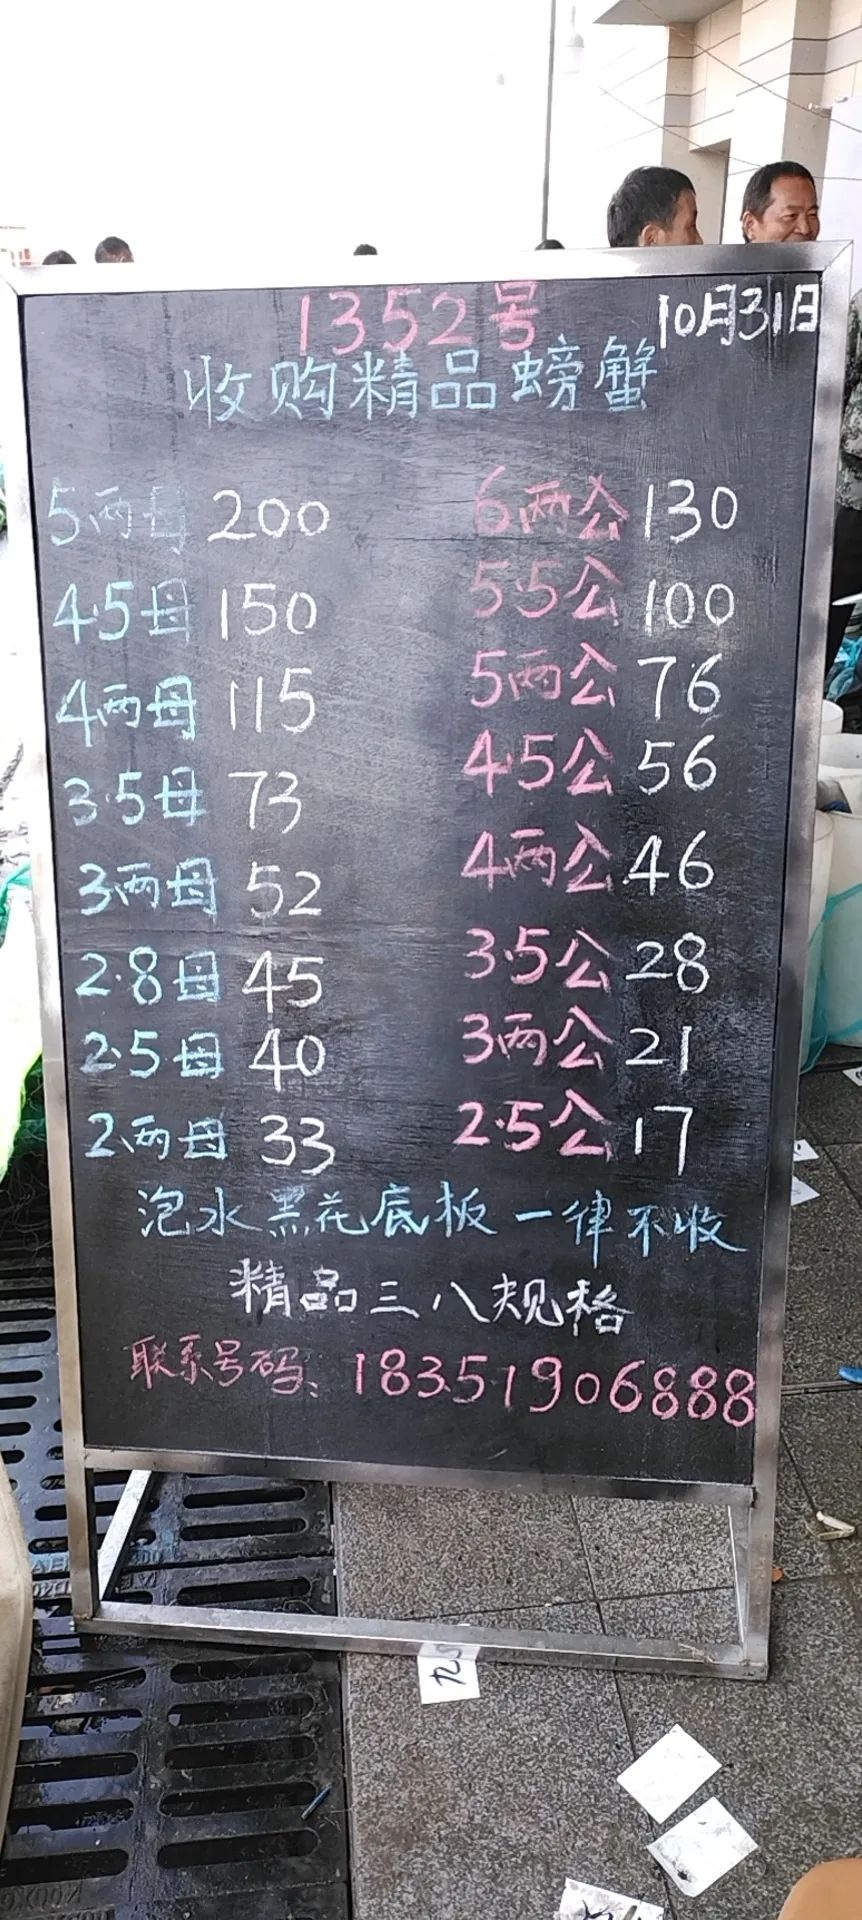 1352号
10月31日
收购精品螃蟹
5两母 200 6两公 130
4.5母 150 5.5公 100
4两母 115 5两公 76
3.5母 73 4.5公 56
3两母 52 4两公 46
2.8母 45 3.5公 28
2.5母 40 3两公 21
2两母 33 2.5公 17
泡水黑花底板一律不收
精品三八规格
联系号码：18351906888